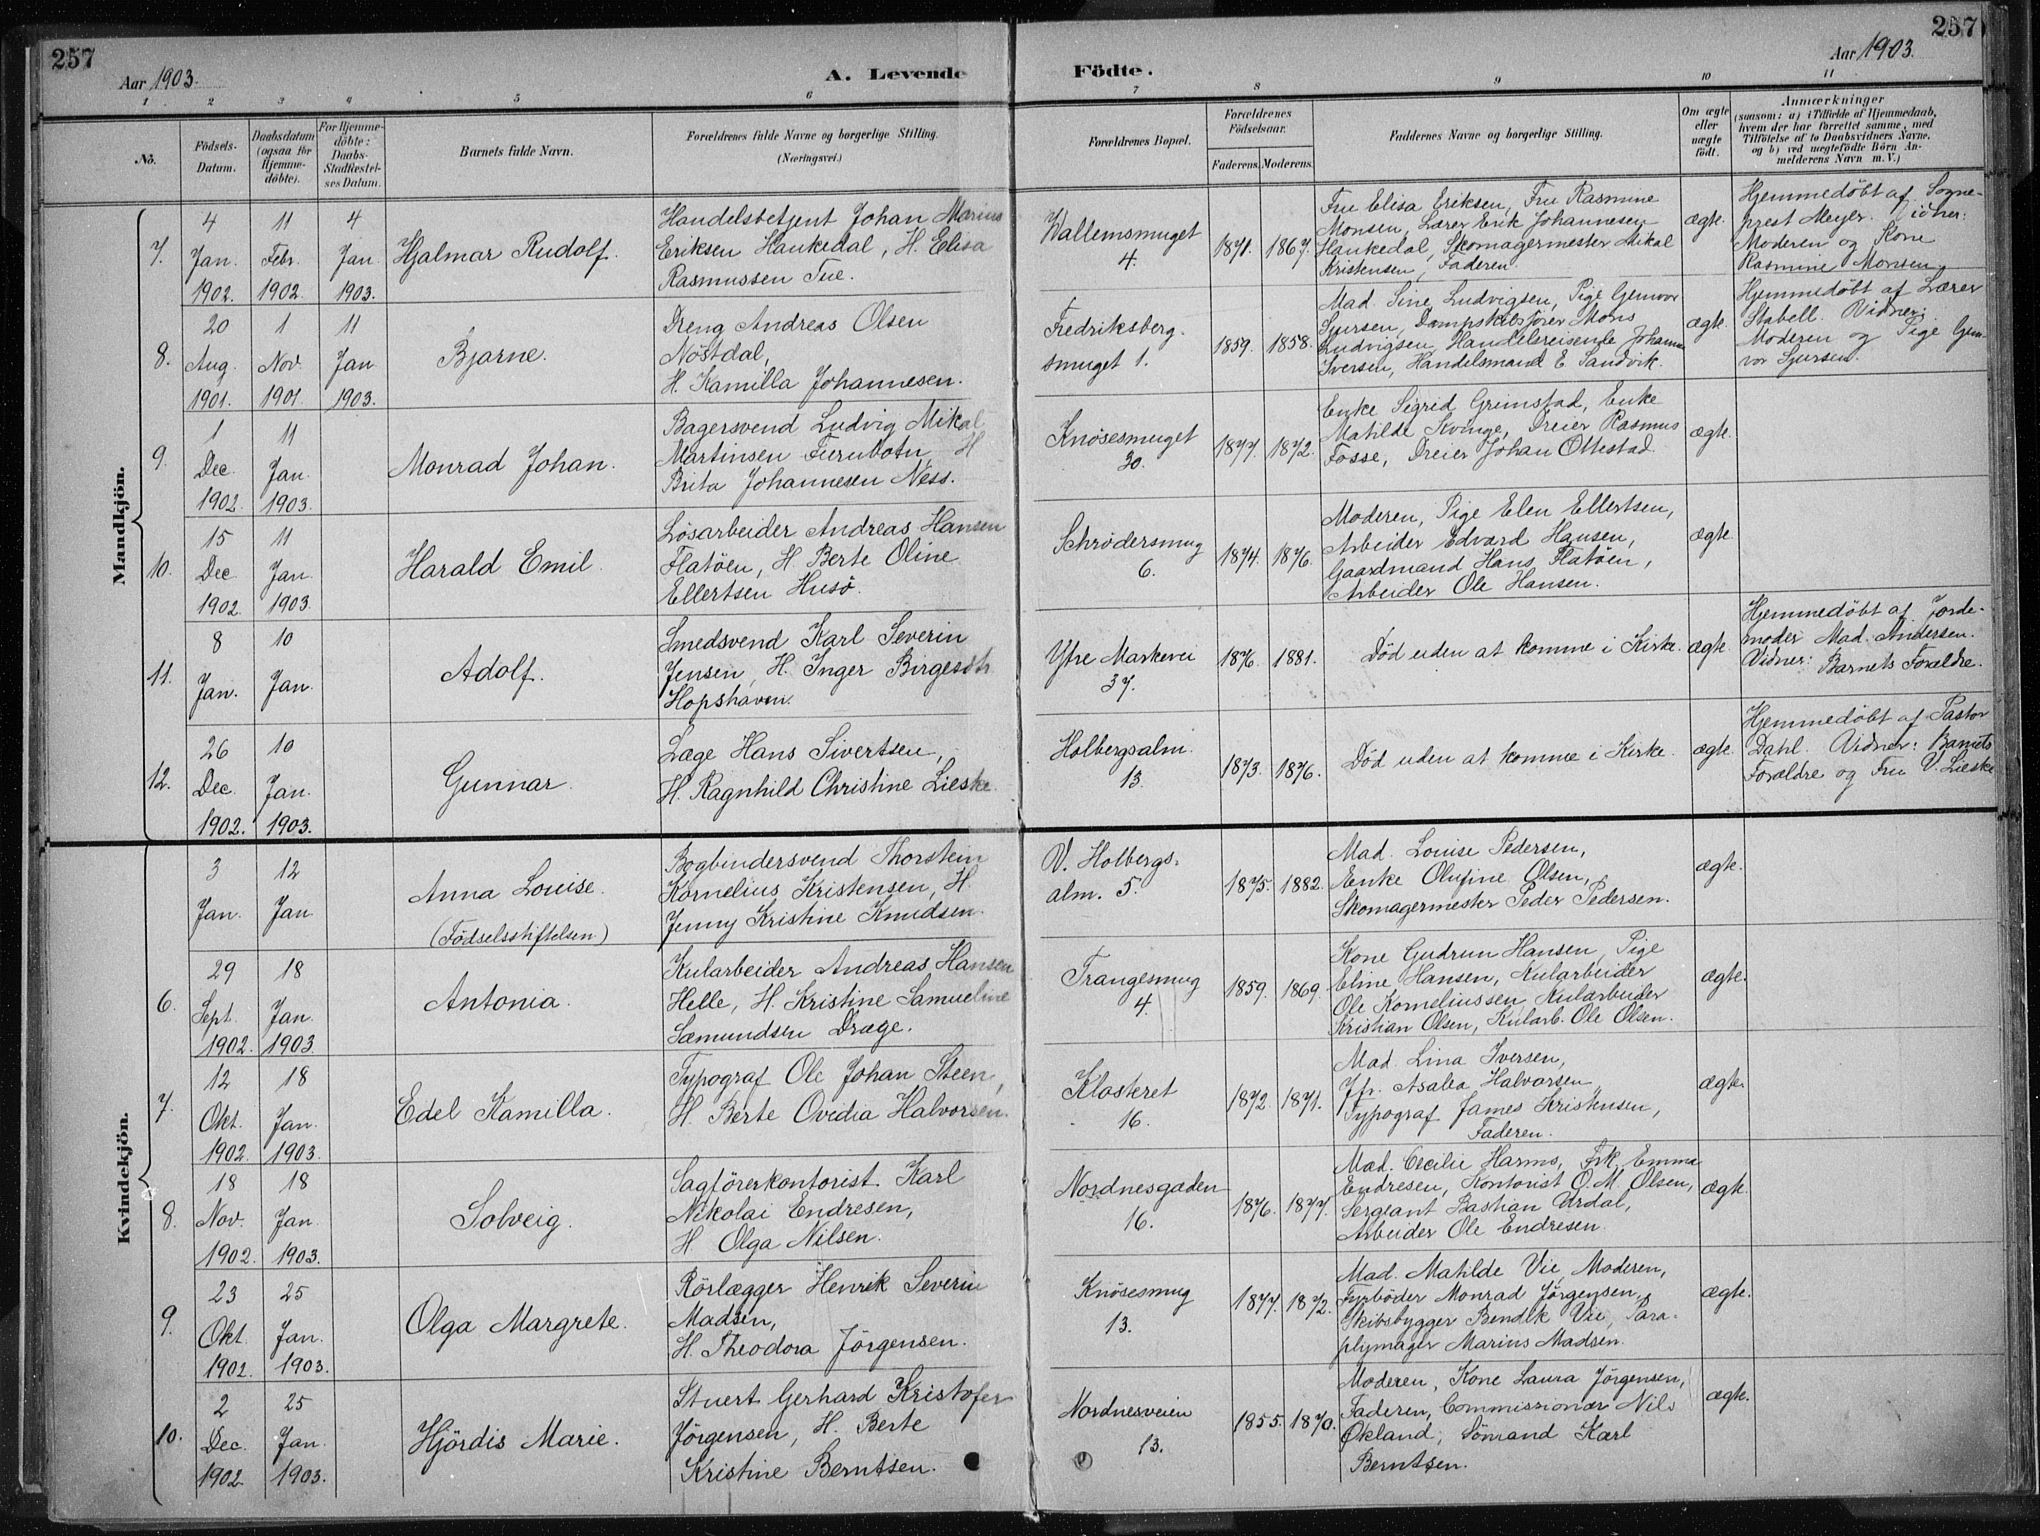 257
257
Aar 1903.
A. Levende
Födte.
Aar 1903.
1 2 3 4 5 6 7 8 9 10 11
No.
Födsels-Datum.
Daabsdatum (ogsaa for Hjemme-döbte).
For Hjemme-döbte: Daabs-Stadfæstel-ses Datum.
Barnets fulde Navn.
Forældrenes fulde Navne og borgerlige Stilling.
(Næringsvei.)
Forældrenes Bopæl.
Forældrenes Födselsaar.
Faderens. Moderens.
Faddernes Navne og borgerlige Stilling.
Om ægte eller uægte födt.
Anmærkninger
(saasom: a) i Tilfælde af Hjemmedaab,
hvem der har forrettet samme, med
Tilföielse af to Daabsvidners Navne,
og b) ved uægtefödte Börn An-
melderens Navn m. V.)
Mandkjön.
7.
4 Jan. 1902.
11 Febr. 1902.
4 Jan 1903.
Hjalmar Rudolf.
Handelsbetjent Johan Marius
Eriksen Haukedal, H. Elisa
Rasmussen Tue.
Wallemsmuget
4.
1871. 1867.
Fru Elisa Eriksen, Fru Rasmine
Monsen, Lærer Erik Johannesen
Haukedal, Skomagermester Mikal
Kristensen, Faderen.
ægte.
Hjemmedøbt af Sogne-
prest Meyer. Vidner:
Moderen og Kone
Rasmine Monsen.
8.
20 Aug. 1901.
1 Nov. 1901.
11 Jan 1903.
Bjarne.
Dreng Andreas Olsen
Nöstdal,
H. Kamilla Johannesen.
Fredriksberg-
smuget 1.
1859. 1858.
Mad. Sine Ludvigsen, Pige Gunvor
Sjursen, Dampskibsfører Mons
Ludvigsen, Handelsreisende Johannes
Iversen, Handelsmand E. Sandvik.
ægte.
Hjemmedøbt af Lærer
Stabell. Vidner:
Moderen og Pige Gun-
vor Sjursen.
9.
1 Dec. 1902.
11 Jan. 1903.
Monrad Johan.
Bagersvend Ludvig Mikal
Martinsen Furubotn, H.
Brita Johannesen Ness.
Knøsesmuget
30.
1877. 1872.
Enke Sigrid Grimstad, Enke
Matilde Kvinge, Dreier Rasmus
Fosse, Dreier Johan Ottestad.
ægte.
10.
15 Dec. 1902.
11 Jan. 1903.
Harald Emil.
Løsarbeider Andreas Hansen
Flatöen, H. Berte Oline
Ellertsen Husö.
Schrödersmug
6.
1874. 1876.
Moderen, Pige Elen Ellertsen,
Arbeider Edvard Hansen,
Gaardmand Hans Flatöen,
Arbeider Ole Hansen.
ægte.
11.
8 Jan.
10 Jan.
Adolf.
Smedsvend Karl Severin
Jensen, H. Inger
Hopshaven.
Ytre Markevei
37.
1876. 1881.
Død uden at komme i Kirke.
ægte
Hjemmedøbt af Jorde-
moder Mad. Andersen.
Vidner: Barnets Forældre.
12.
26 Dec. 1902.
10 Jan. 1903.
Gunnar.
Læge Hans Sivertsen,
H. Ragnhild Christine Lieske.
Holbergsalm.
13.
1873. 1876.
Død uden at komme i Kirke.
ægte.
Hjemmedøbt af Pastor
Dahl. Vidner: Barnets
Forældre og Fru V. Lieske
Kvindekjön.
3 Jan.
12 Jan
Anna Louise.
(Födselsstiftelsen)
Bogbindersvend Thorstein
Kornelius Kristensen, H.
Jenny Kristine Knudsen.
V. Holbergs-
alm. 5.
1875. 1882.
Mad. Louise Pedersen,
Enke Olufine Olsen,
Skomagermester Peder Pedersen.
ægte.
6.
29 Sept. 1902.
18 Jan. 1903
Antonia.
Kularbeider Andreas Hansen
Helle, H. Kristine Samueline
Sæmundsen Drage.
Trangesmug
4.
1859. 1869.
Kone Gudrun Hansen, Pige
Eline Hansen, Kularbeider
Ole Korneliussen, Kularbeider
Kristian Olsen, Kularb. Ole Olsen.
ægte.
7.
12 Okt. 1902.
18 Jan. 1903.
Edel Kamilla.
Typograf Ole Johan Steen,
H. Berte Ovidia Halvorsen.
Klosteret
16.
1872 1871.
Mad. Lina Iversen,
Jfr. Asalea Halvorsen,
Typograf James Kristensen,
Faderen.
ægte.
8.
18 Nov. 1902.
18 Jan. 1903.
Solveig.
Sagförerkontorist Karl
Nikolai Endresen,
H. Olga Nilsen.
Nordnesgaden
16.
1876. 1877.
Mad. Cecilie Harms, Frk. Emma
Endresen, Kontorist O. M. Olsen,
Sergeant Bastian Urdal,
Arbeider Ole Endresen.
ægte.
9.
23 Okt. 1902.
25 Jan. 1903.
Olga Margrete.
Rörlægger Henrik Severin
Madsen,
H. Theodora Jörgensen.
Knösesmug
13.
1877. 1872.
Mad. Matilde Vie, Moderen,
Fyrbøder Monrad Jørgensen,
Skibsbygger Bendik Vie, Para-
plymager Marius Madsen.
ægte.
10.
2 Dec. 1902
25 Jan. 1903.
Hjördis Marie.
Stuert Gerhard Kristofer
Jörgensen, H. Berte
Kristine Berntsen.
Nordnesveien
13.
1855. 1870.
Moderen, Kone Laura Jörgensen,
Faderen, Commissionær Nils
Økland, Sömand Karl
Berntsen.
ægte.